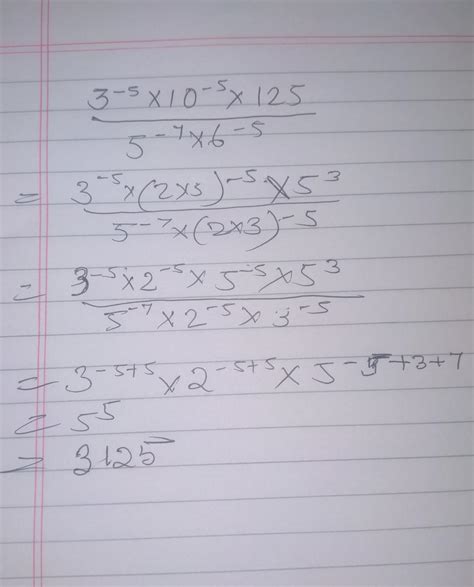 3⁻⁵×10⁻⁵×125
5⁻⁷×6⁻⁵
= 3⁻⁵×(2×5)⁻⁵×5³
5⁻⁷×(2×3)⁻⁵
= 3⁻⁵×2⁻⁵×5⁻⁵×5³
5⁻⁷×2⁻⁵×3⁻⁵
= 3⁻⁵⁺⁵×2⁻⁵⁺⁵×5⁻⁵⁺³⁺⁷
= 5⁵
= 3125